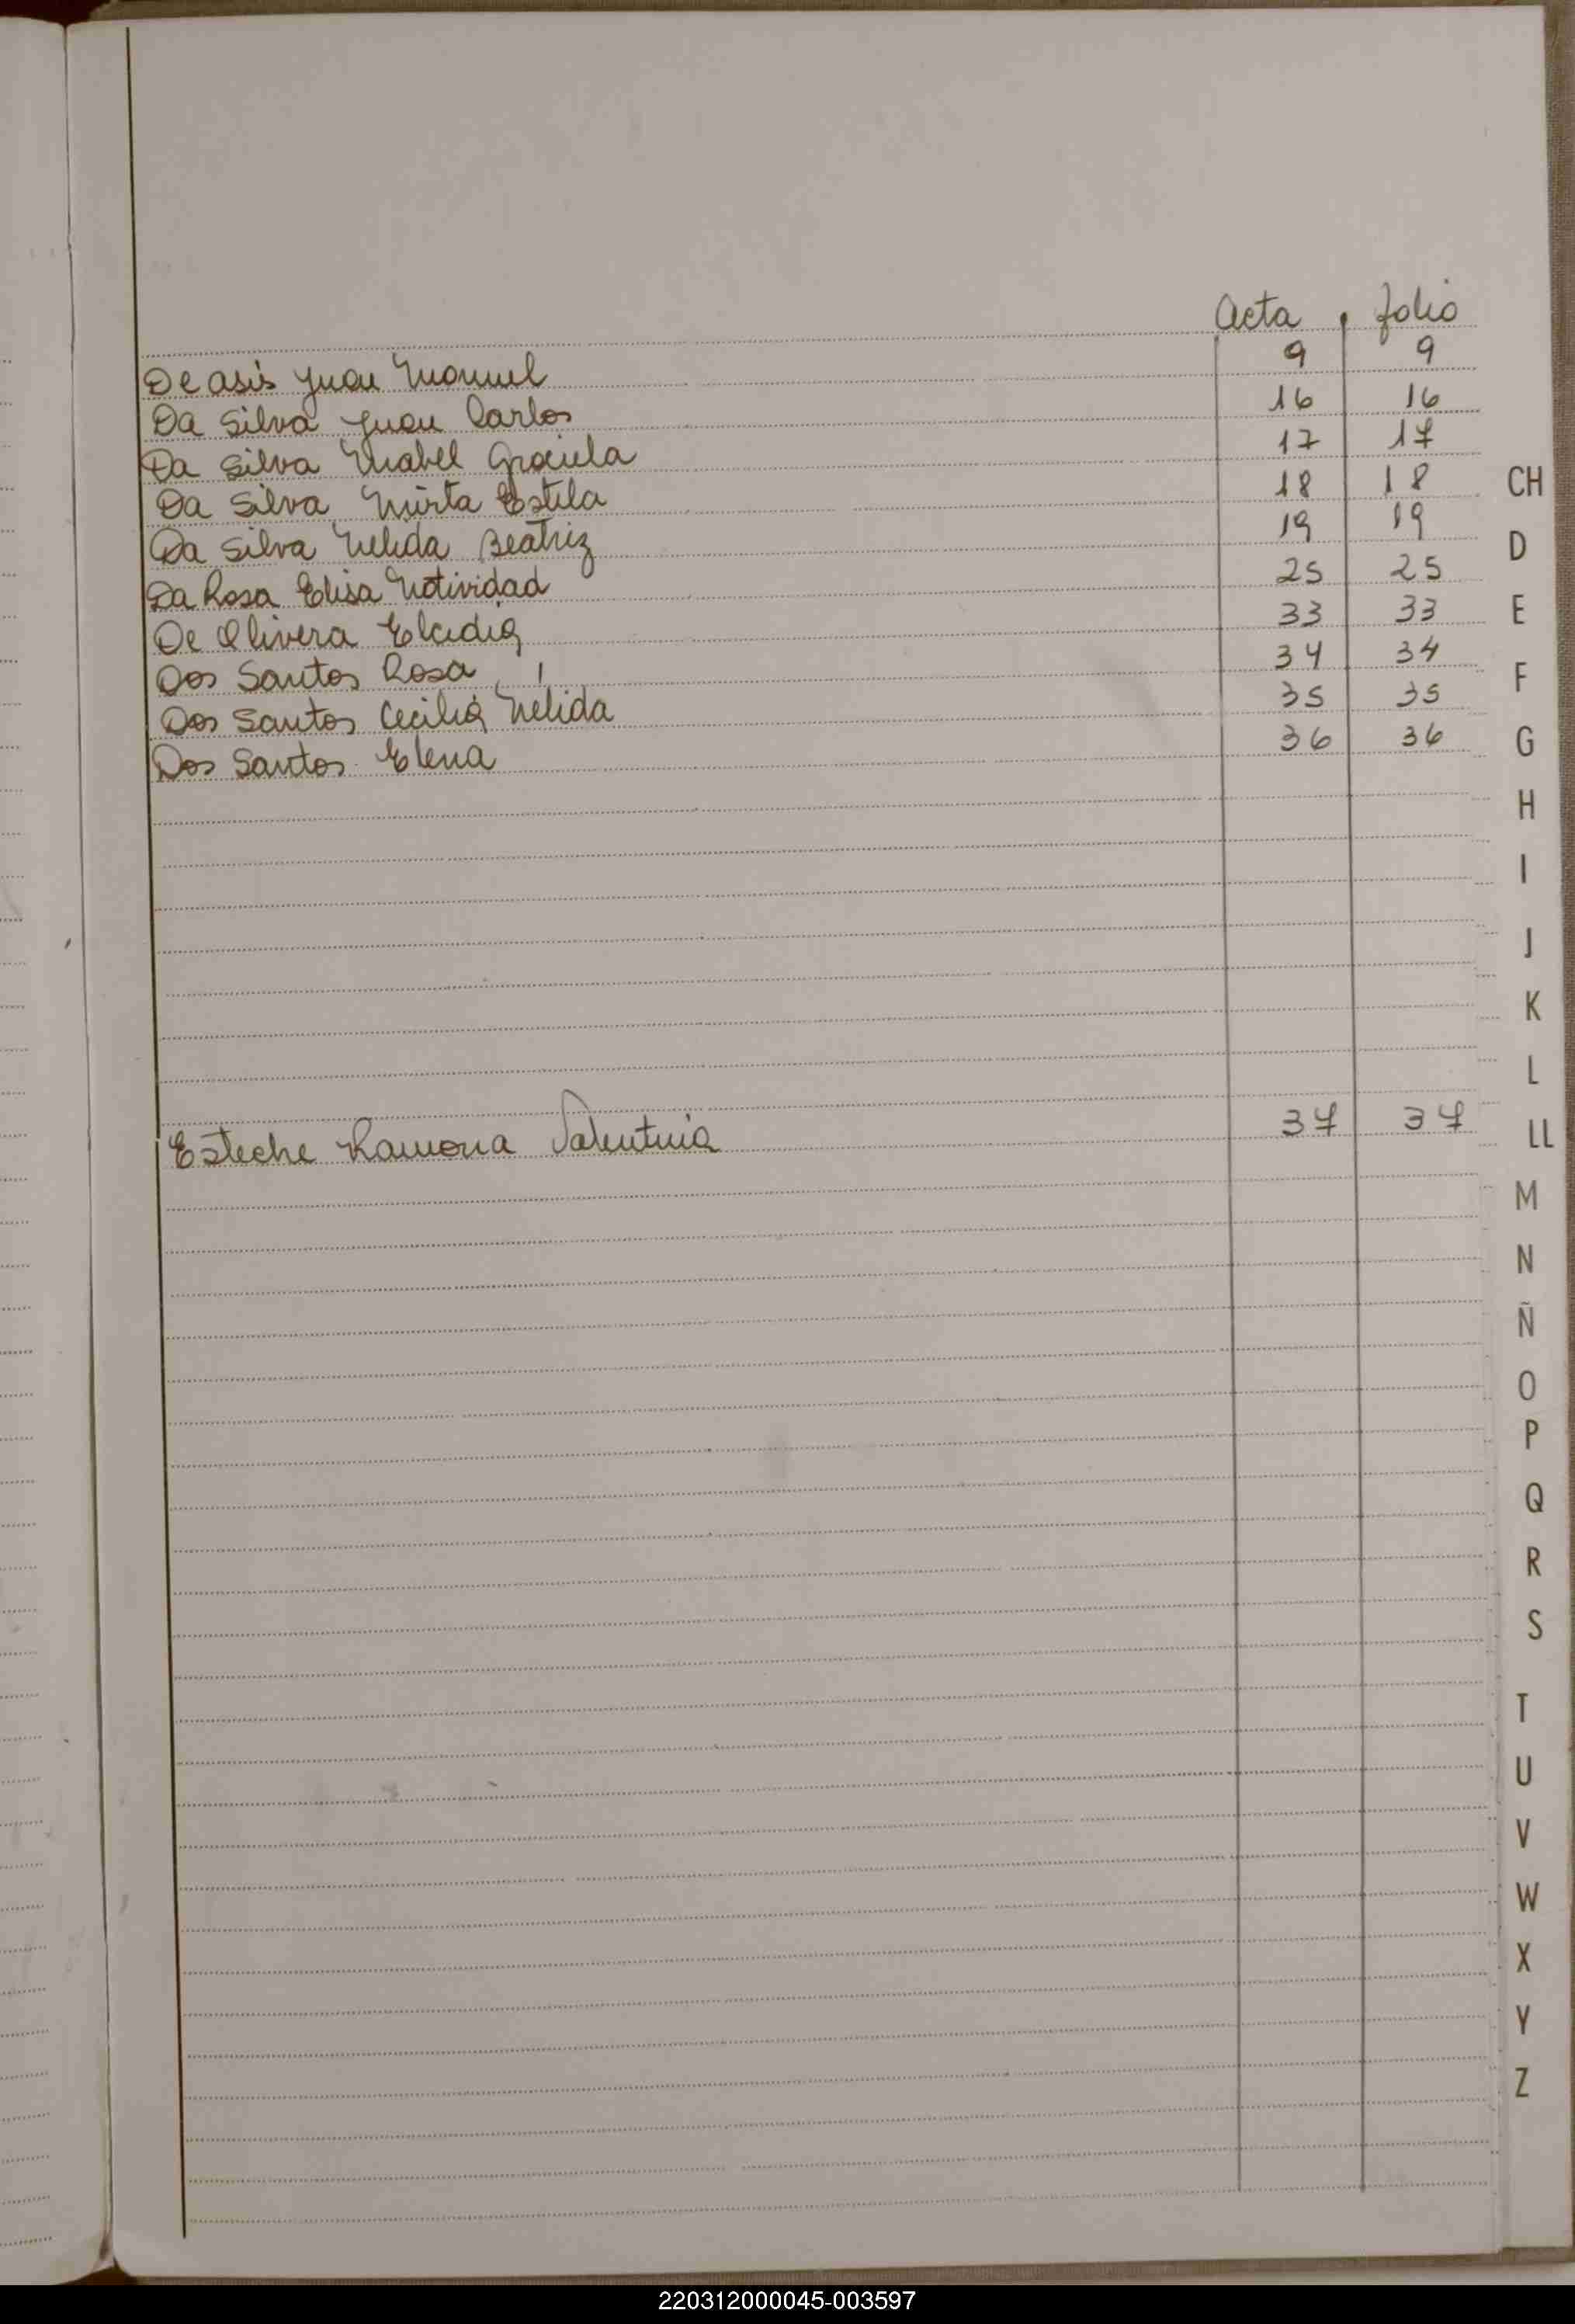 Acta folio
De asis Juan Manuel 9 9
Da Silva Juan Carlos 16 16
Da Silva Mabel Graciela 17 17
Da Silva Mirta Estela 18 18
Da Silva Nelida Beatriz 19 19
Da Rosa Elisa Natividad 25 25
De Olivera Elcidia 33 33
Dos Santos Rosa 34 34
Dos Santos Cecilia Nelida 35 35
Dos Santos Elena 36 36
Esteche Ramona Valentina 37 37
CH
D
E
F
G
H
I
J
K
L
LL
M
N
Ñ
O
P
Q
R
S
T
U
V
W
X
Y
Z
220312000045-003597